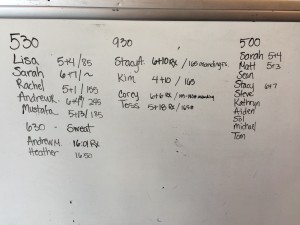 530
Lisa 5+4/85
Sarah 6+7/~
Rachel 5+1/135
Andrew R. 6+4/245
Mustafa 5+13/185
630 - Sweat
Andrew M. 16:01 Rx
Heather 16:50
930
Stacy A. 6+10 Rx / 160
Kim 4+10 / 165
Corey 6+6 Rx
Tess 5+18 Rx / 165#
500
Sarah 5+4
Matt 5+3
Sean
Stacy 6+7
Steve
Kathryn
Alden
Sol
Michael
Tom